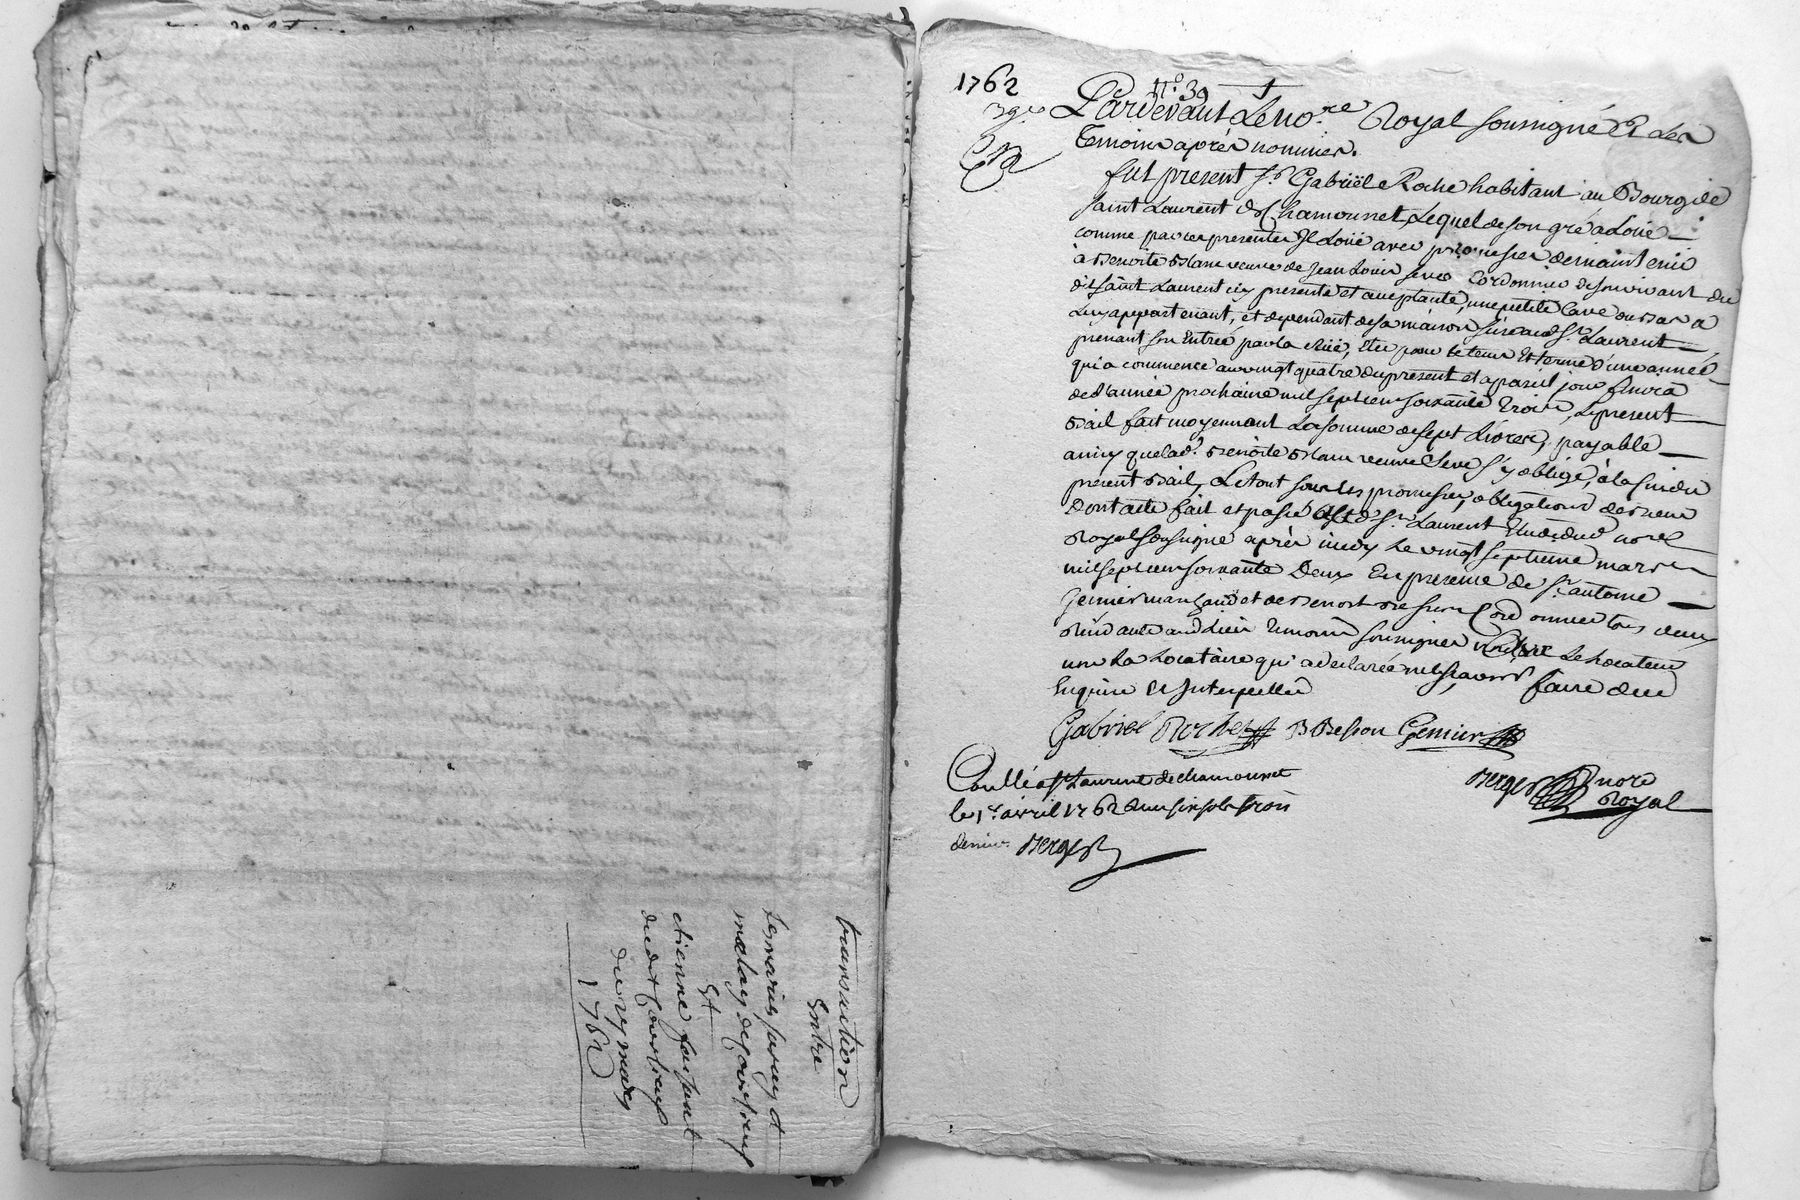 transaction
Entre
et
etienne
du 27 mars
1762
1762
n.º 39
Pardevant Le no.re Royal soussigné Et Les
Temoins après nommés.
fut present S.r Gabriël Roche habitant au Bourg de
saint Laurent de Chamousset, Lequel de son gré a Loüé
comme par ces presentes Il Loüe avec promesse de maintenir
à Benoite Blanc veuve de Jean Louis Seve Cordonnier de son vivant du
dit saint Laurent icy presente et acceptante, une petite Cave ou Bas a
Luy appartenant, et dependant de sa maison size aud. S.t Laurent
prenant son Entrée par la Rüe, Et ce pour le tems Et terme d'une année
qui a commencé au vingt quatre du present et a pareil jour finira
de L'année prochaine mil sept cent soixante Trois, Le present
Bail fait moyennant La somme de sept Livres, payable
ainsy que lad.e Benoite Blanc veuve Seve s'y oblige, à la fin du
present Bail, Le tout sous les promesses, obligations
Dont acte fait et passé aud. S.t Laurent Etude du d. no.re
Royal soussigné après midy Le vingt septieme mars
mil sept cent soixante Deux En presence de S.r antoine
Genier marchand et de Benoit Besson Cordonnier tous deux
Residants aud. Lieu Temoins soussignés Le Locateur
non La Locataire qui a declarée ne sçavoir faire de ce
Enquise Et Interpellée
Gabriel Roche B Besson Genier
Coullé a S.t Laurent de chamousset
le 1.er avril 1762 Reçu six sols trois
deniers Berger
Berger nore
Royal